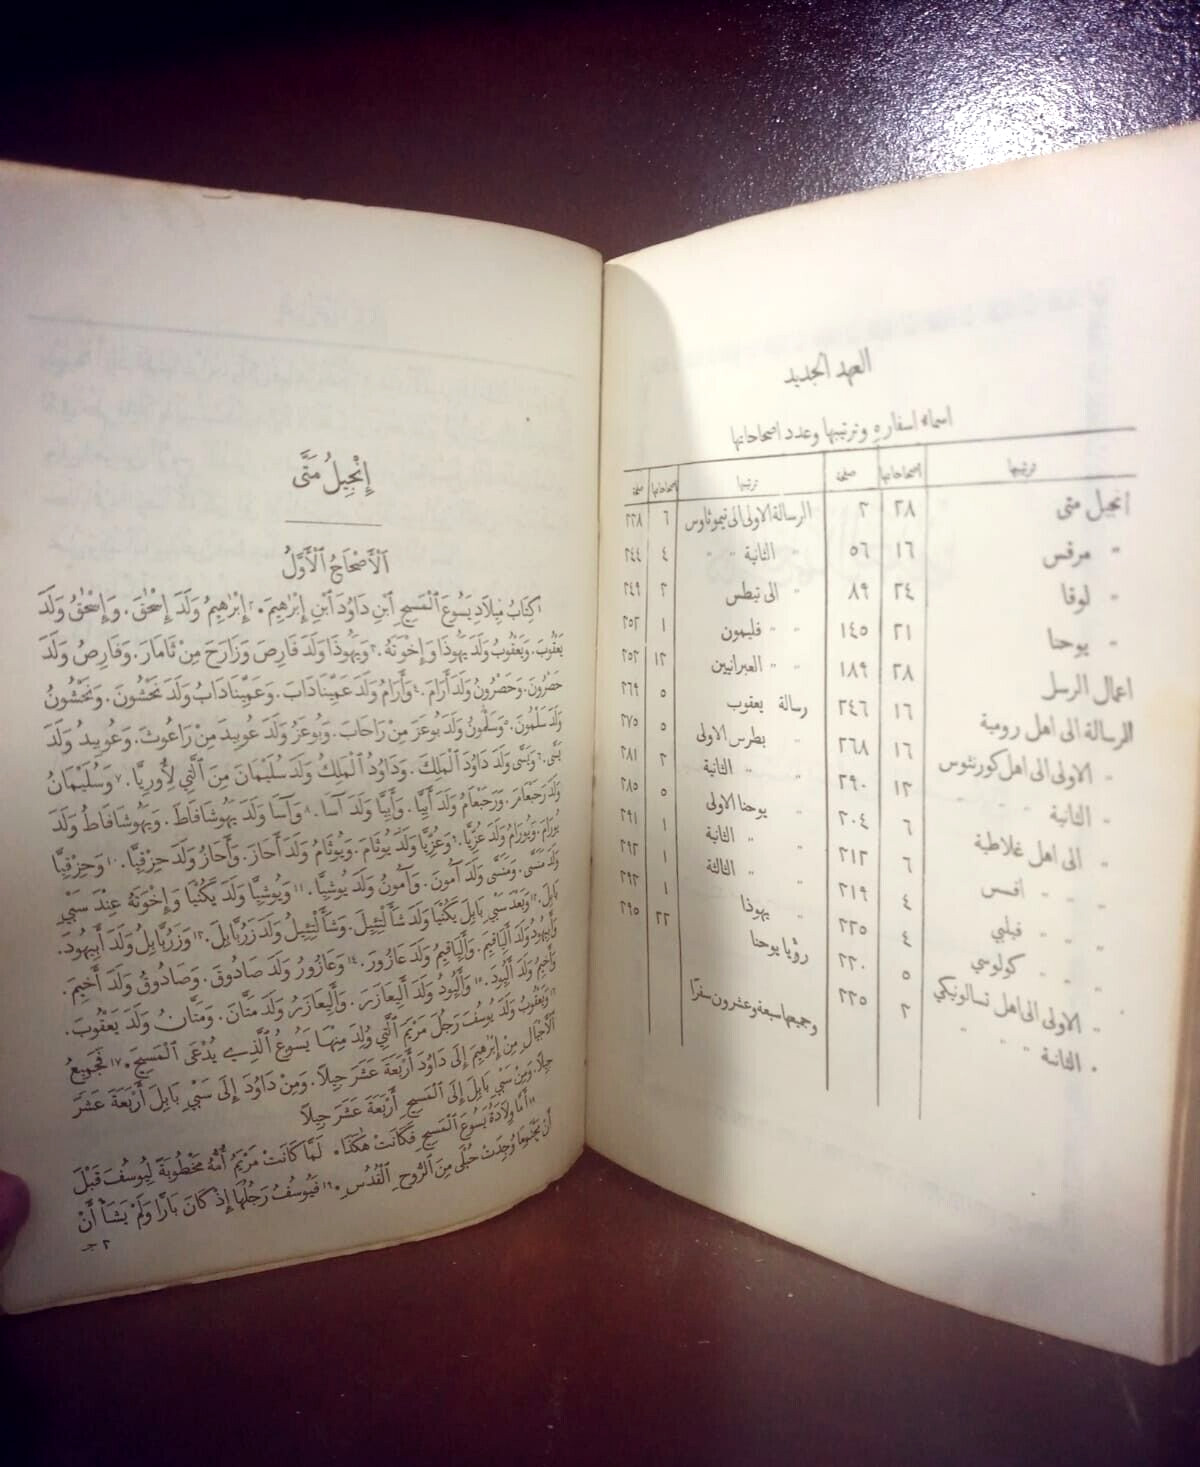 العهد الجديد
اسماء اسفاره وترتيبها وعدد اصحاحاتها
ترتيبها اصحاحاتها صفحة ترتيبها اصحاحاتها صفحة
انجيل متى ٢٨ ٢ الرسالة الاولى الى تيموثاوس ٦ ٣٣٨
" مرقس ١٦ ٥٦ " الثانية " " ٤ ٣٤٤
" لوقا ٢٤ ٨٩ " الى تيطس ٣ ٣٤٩
" يوحنا ٢١ ١٤٥ " " فليمون ١ ٣٥٢
اعمال الرسل ٢٨ ١٨٩ " " العبرانيين ١٣ ٣٥٣
الرسالة الى اهل رومية ١٦ ٢٤٦ رسالة يعقوب ٥ ٣٦٩
" الاولى الى اهل كورنثوس ١٦ ٢٦٨ " بطرس الاولى ٥ ٣٧٥
" الثانية " " " ١٣ ٢٩٠ " " الثانية ٣ ٣٨١
" الى اهل غلاطية ٦ ٣٠٤ " يوحنا الاولى ٥ ٣٨٥
" " " افسس ٦ ٣١٣ " " الثانية ١ ٣٩١
" " " فيلبي ٤ ٣١٩ " " الثالثة ١ ٣٩٢
" " " كولوسي ٤ ٣٢٥ " يهوذا ١ ٣٩٣
" الاولى الى اهل تسالونيكي ٥ ٣٣٠ رؤيا يوحنا ٢٢ ٣٩٥
" الثانية " " " ٣ ٣٣٥ وجميعها سبعة وعشرون سفرًا
إِنْجِيلُ مَتَّى
اَلْأَصْحَاحُ ٱلْأَوَّلُ
١ كِتَابُ مِيلَادِ يَسُوعَ ٱلْمَسِيحِ ٱبْنِ دَاوُدَ ٱبْنِ إِبْرٰهِيمَ. ٢ إِبْرٰهِيمُ وَلَدَ إِسْحٰقَ. وَإِسْحٰقُ وَلَدَ
يَعْقُوبَ. وَيَعْقُوبُ وَلَدَ يَهُوذَا وَإِخْوَتَهُ. ٣ وَيَهُوذَا وَلَدَ فَارِصَ وَزَارَحَ مِنْ ثَامَارَ. وَفَارِصُ وَلَدَ
حَصْرُونَ. وَحَصْرُونُ وَلَدَ أَرَامَ. ٤ وَأَرَامُ وَلَدَ عَمِّينَادَابَ. وَعَمِّينَادَابُ وَلَدَ نَحْشُونَ. وَنَحْشُونُ
وَلَدَ سَلْمُونَ. ٥ وَسَلْمُونُ وَلَدَ بُوعَزَ مِنْ رَاحَابَ. وَبُوعَزُ وَلَدَ عُوبِيدَ مِنْ رَاعُوثَ. وَعُوبِيدُ وَلَدَ
يَسَّى. ٦ وَيَسَّى وَلَدَ دَاوُدَ ٱلْمَلِكَ. وَدَاوُدُ ٱلْمَلِكُ وَلَدَ سُلَيْمَانَ مِنَ ٱلَّتِي لِأُورِيَّا. ٧ وَسُلَيْمَانُ
وَلَدَ رَحَبْعَامَ. وَرَحَبْعَامُ وَلَدَ أَبِيَّا. وَأَبِيَّا وَلَدَ آسَا. ٨ وَآسَا وَلَدَ يَهُوشَافَاطَ. وَيَهُوشَافَاطُ وَلَدَ
يُورَامَ. وَيُورَامُ وَلَدَ عُزِّيَّا. ٩ وَعُزِّيَّا وَلَدَ يُوثَامَ. وَيُوثَامُ وَلَدَ أَحَازَ. وَأَحَازُ وَلَدَ حِزْقِيَّا. ١٠ وَحِزْقِيَّا
وَلَدَ مَنَسَّى. وَمَنَسَّى وَلَدَ آمُونَ. وَآمُونُ وَلَدَ يُوشِيَّا. ١١ وَيُوشِيَّا وَلَدَ يَكُنْيَا وَإِخْوَتَهُ عِنْدَ سَبْيِ
بَابِلَ. ١٢ وَبَعْدَ سَبْيِ بَابِلَ يَكُنْيَا وَلَدَ شَأَلْتِئِيلَ. وَشَأَلْتِئِيلُ وَلَدَ زَرُبَّابِلَ. ١٣ وَزَرُبَّابِلُ وَلَدَ أَبِيهُودَ.
وَأَبِيهُودُ وَلَدَ أَلِيَاقِيمَ. وَأَلِيَاقِيمُ وَلَدَ عَازُورَ. ١٤ وَعَازُورُ وَلَدَ صَادُوقَ. وَصَادُوقُ وَلَدَ أَخِيمَ.
وَأَخِيمُ وَلَدَ أَلِيُودَ. ١٥ وَأَلِيُودُ وَلَدَ أَلِيعَازَرَ. وَأَلِيعَازَرُ وَلَدَ مَتَّانَ. وَمَتَّانُ وَلَدَ يَعْقُوبَ.
١٦ وَيَعْقُوبُ وَلَدَ يُوسُفَ رَجُلَ مَرْيَمَ ٱلَّتِي وُلِدَ مِنْهَا يَسُوعُ ٱلَّذِي يُدْعَى ٱلْمَسِيحَ. ١٧ فَجَمِيعُ
ٱلْأَجْيَالِ مِنْ إِبْرٰهِيمَ إِلَى دَاوُدَ أَرْبَعَةَ عَشَرَ جِيلًا. وَمِنْ دَاوُدَ إِلَى سَبْيِ بَابِلَ أَرْبَعَةَ عَشَرَ
جِيلًا. وَمِنْ سَبْيِ بَابِلَ إِلَى ٱلْمَسِيحِ أَرْبَعَةَ عَشَرَ جِيلًا
١٨ أَمَّا وِلَادَةُ يَسُوعَ ٱلْمَسِيحِ فَكَانَتْ هٰكَذَا. لَمَّا كَانَتْ مَرْيَمُ أُمُّهُ مَخْطُوبَةً لِيُوسُفَ قَبْلَ
أَنْ يَجْتَمِعَا وُجِدَتْ حُبْلَى مِنَ ٱلرُّوحِ ٱلْقُدُسِ. ١٩ فَيُوسُفُ رَجُلُهَا إِذْ كَانَ بَارًّا وَلَمْ يَشَأْ أَنْ
٢ جـ